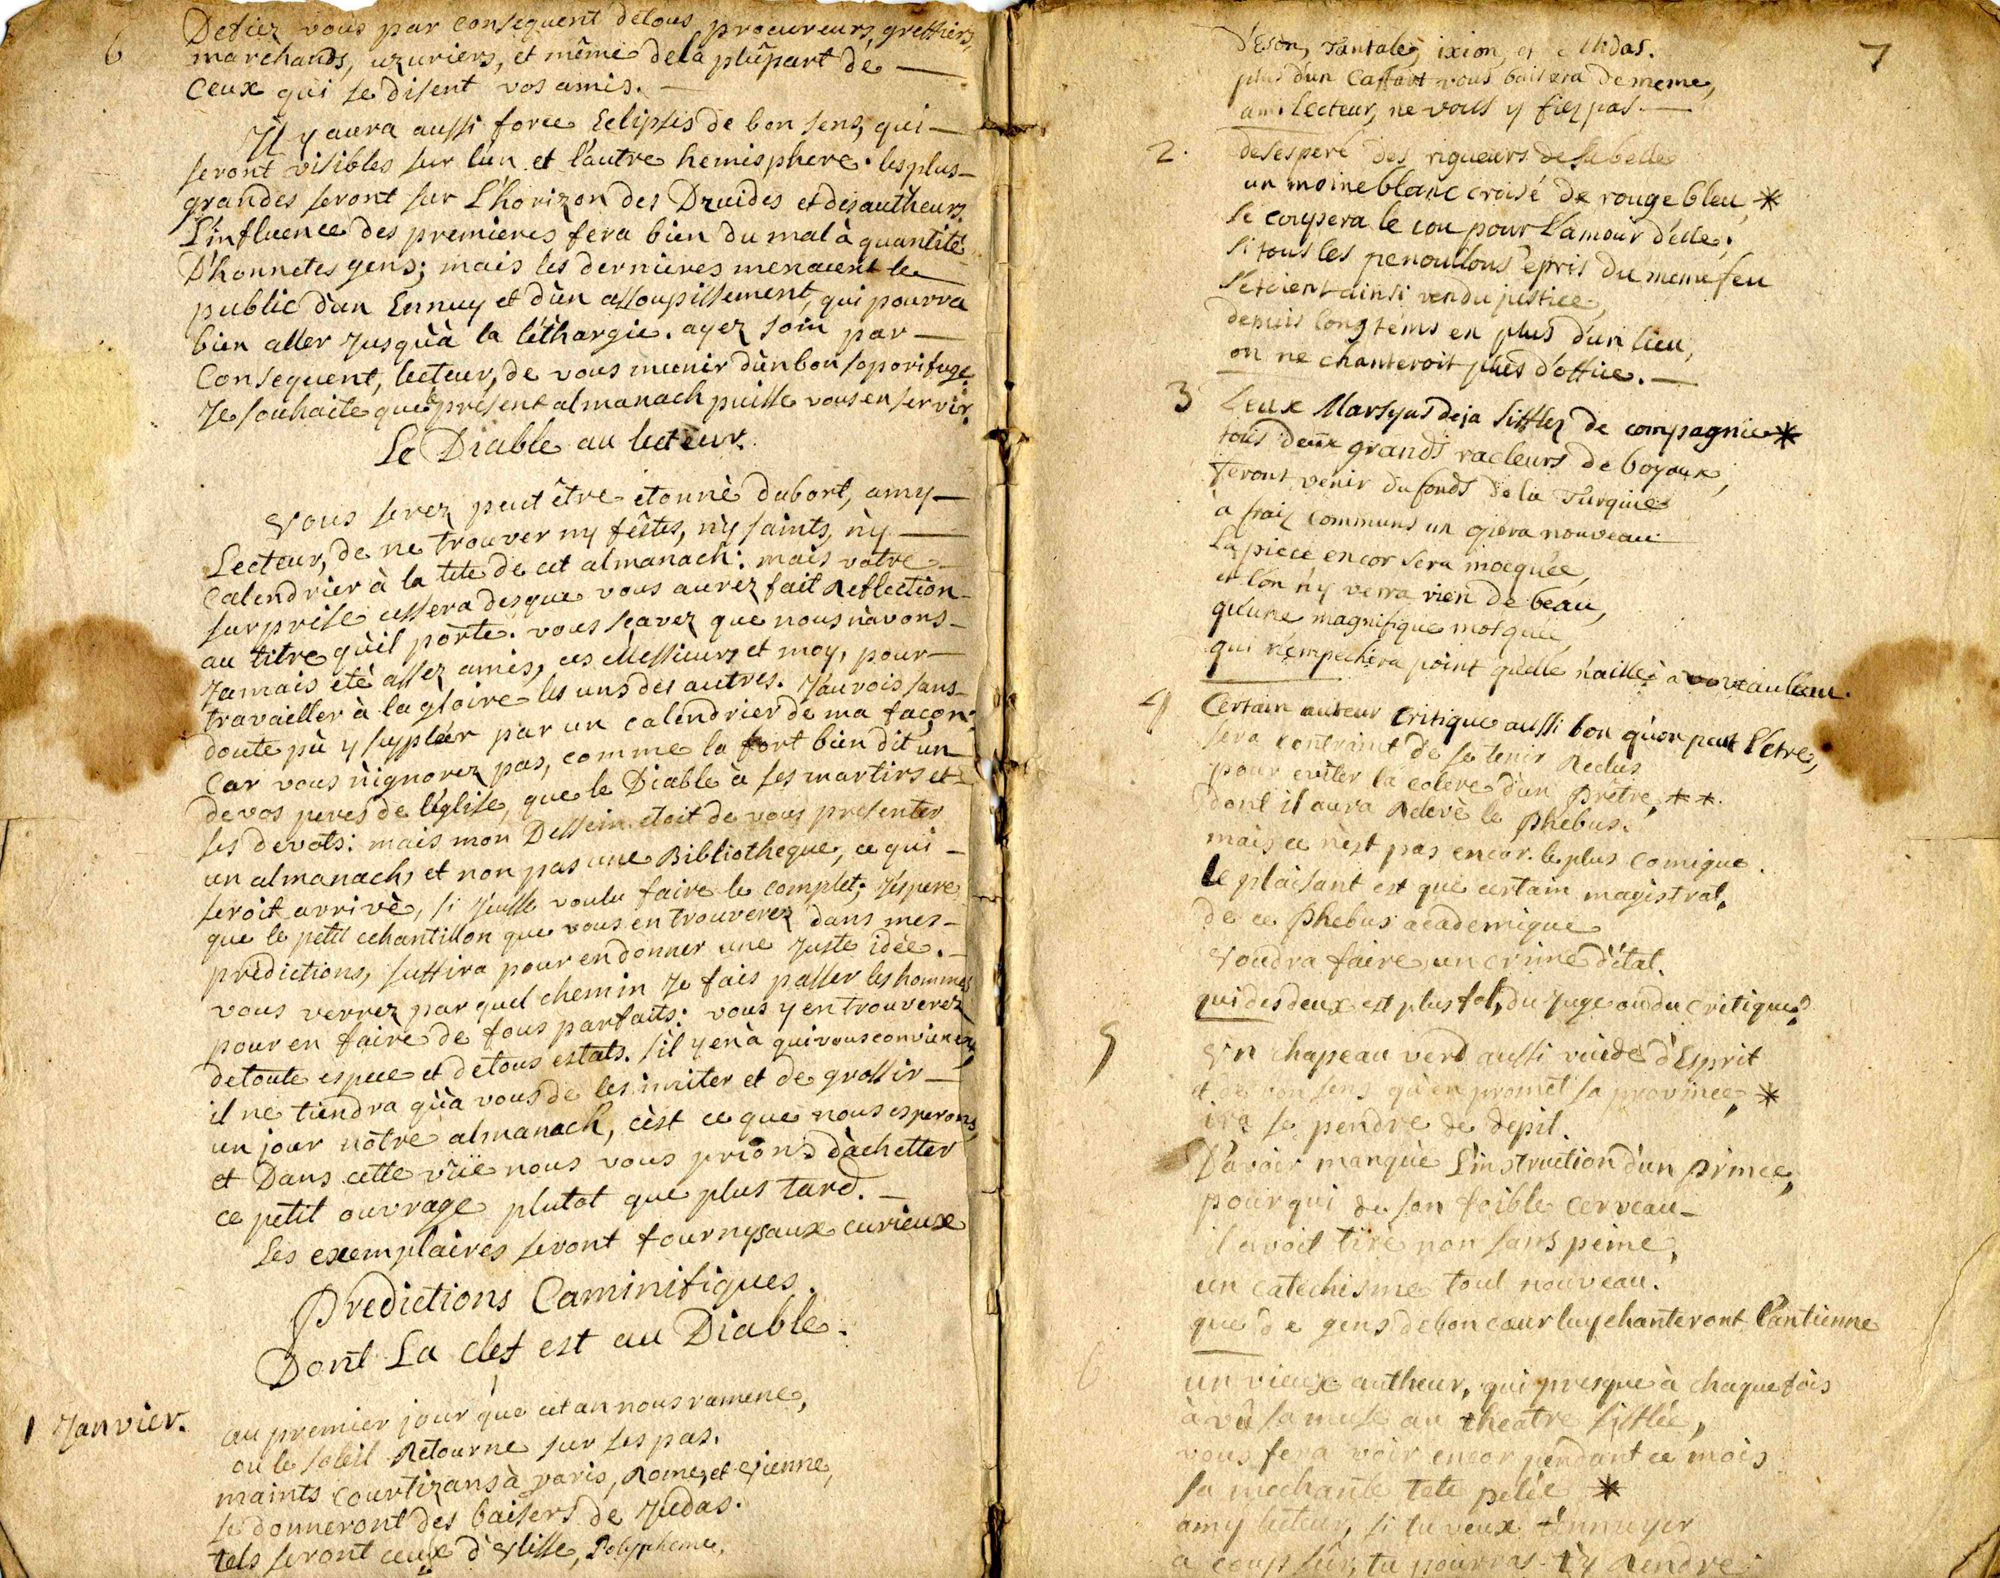 6
Defiez vous par consequent de tous procureurs, greffiers,
marchands, uzuriers, et même de la plûpart de
ceux qui se disent vos amis.
Il y aura aussi force Eclipses de bon sens, qui
seront visibles sur l'un et l'autre hemisphere. les plus
grandes seront sur L'horizon des Druides et des autheurs.
L'influence des premieres fera bien du mal à quantité
D'honnetes gens; mais les dernieres menacent le
public d'un Ennuy et d'un assoupissement, qui pourra
bien aller Jusqu'à la léthargie. ayez soin par
Consequent, lecteur, de vous munir d'un bon soporifuge.
Je souhaite que le présent almanach puisse vous en servir.
Le Diable au lecteur.
Vous serez peut être étonné dabort, amy
Lecteur, de ne trouver ny fêstes, ny saints, ny
Calendrier à la tete de cet almanach: mais vôtre
surprise cessera desque vous aurez fait Reflection
au titre qu'il porte. vous scavez que nous n'avons
Jamais été assez amis, ces Messieurs et moy, pour
travailler à la gloire les uns des autres. J'aurois sans
doute pû y suppléer par un calendrier de ma façon.
Car vous n'ignorez pas, comme la fort bien dit un
de vos peres de l'église, que le Diable à ses martirs et
ses devots: mais mon Dessein etoit de vous presenter
un almanach, et non pas une Bibliotheque, ce qui
seroit arrivé, si j'eusse voulu faire le complet; J'espere
que le petit echantillon que vous en trouverez dans mes
prédictions, suffira pour en donner une Juste idée.
vous verrez par quel chemin Je fais passer les hommes
pour en faire de fous parfaits: vous y en trouverez
de toute espece et de tous estats. s'il y en à qui vous conviennent,
il ne tiendra qu'à vous de les imiter et de grossir
un jour nôtre almanach, c'est ce que nous esperons,
et Dans cette vüe nous vous prions d'achetter
ce petit ouvrage plutot que plus tard.
Les exemplaires seront fournys aux curieux
Predictions Caminifiques.
Dont La clef est au Diable.
1 Janvier.
au premier jour que cet an nous ramene,
ou le soleil Retourne sur ses pas.
maints courtizans à paris, Rome, et vienne,
se donneront des baisers de Judas.
tels seront ceux d'Ulisse, Polypheme,
7
d'Eson, Tantale, ixion, et Midas.
plus d'un Caffart vous baisera de meme,
ami lecteur, ne vous y fiez pas.
2. desesperé des rigueurs de sa belle
un moine blanc croisé de rouge bleu, *
se coupera le cou pour l'amour d'elle;
si tous les penoullons épris du meme feu
s'etoient ainsi rendu justice,
depuis longtems en plus d'un lieu,
on ne chanteroit plus d'office.
3 Deux Marsyas deja sifflez de compagnie *
tous deux grands racleurs de boyaux,
feront venir du fonds de la Turquie
à fraiz communs un opera nouveau
La piece encor sera mocquée,
et l'on n'y verra rien de beau,
qu'une magnifique mosquée
qui n'empechera point qu'elle n'aille à
4 Certain auteur critique aussi bon qu'on peut l'etre,
sera contraint de se tenir Reclus
pour eviter la colere d'un Prêtre, * *
dont il aura Relevé le Phebus.
mais ce n'est pas encor le plus comique.
le plaisant est que certain magistrat,
de ce Phebus academique
Voudra faire un crime d'état.
qui des deux est plus fol, du Juge ou du critique?
5 Un chapeau verd aussi vuide d'Esprit
et de bon sens qu'en promet sa province, *
ira se pendre de depit.
D'avoir manqué l'instruction d'un Prince,
pour qui de son foible cerveau
il avoit tiré non sans peine,
un catechisme tout nouveau.
que de gens de bon coeur luy chanteront l'antienne
6 un vieux autheur, qui presque à chaque fois
à vû sa muse au theatre sifflée,
vous fera voir encor pendant ce mois
sa mechante tete pelée *
amy lecteur, si tu veux t'ennuyer
a coup sûr, tu pourras t'y Rendre.